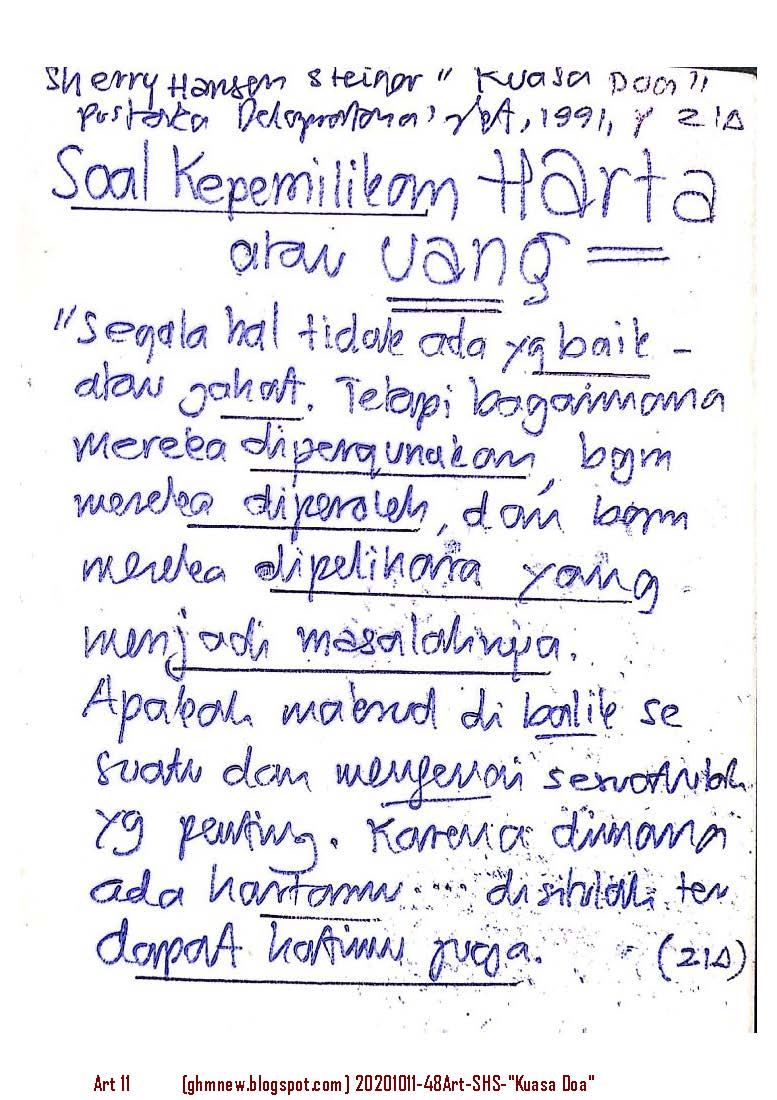 Sherry Hansen Steiger " Kuasa Doa "
Pustaka Delapratasa, 1991, 214
Soal Kepemilikan Harta
atau Uang =
"Segala hal tidak ada yg baik -
atau jahat. Tetapi bagaimana
mereka dipergunakan, bgm
mereka diperoleh, dan bgm
mereka dipelihara yang
menjadi masalahnya.
Apakah maksud di balik se
suatu dan mengenai sesuatulah
yg penting. Karena dimana
ada hartamu ... disitulah ter
dapat hatimu juga. (214)
Art 11 (ghmnew.blogspot.com) 20201011-48Art-SHS-"Kuasa Doa"